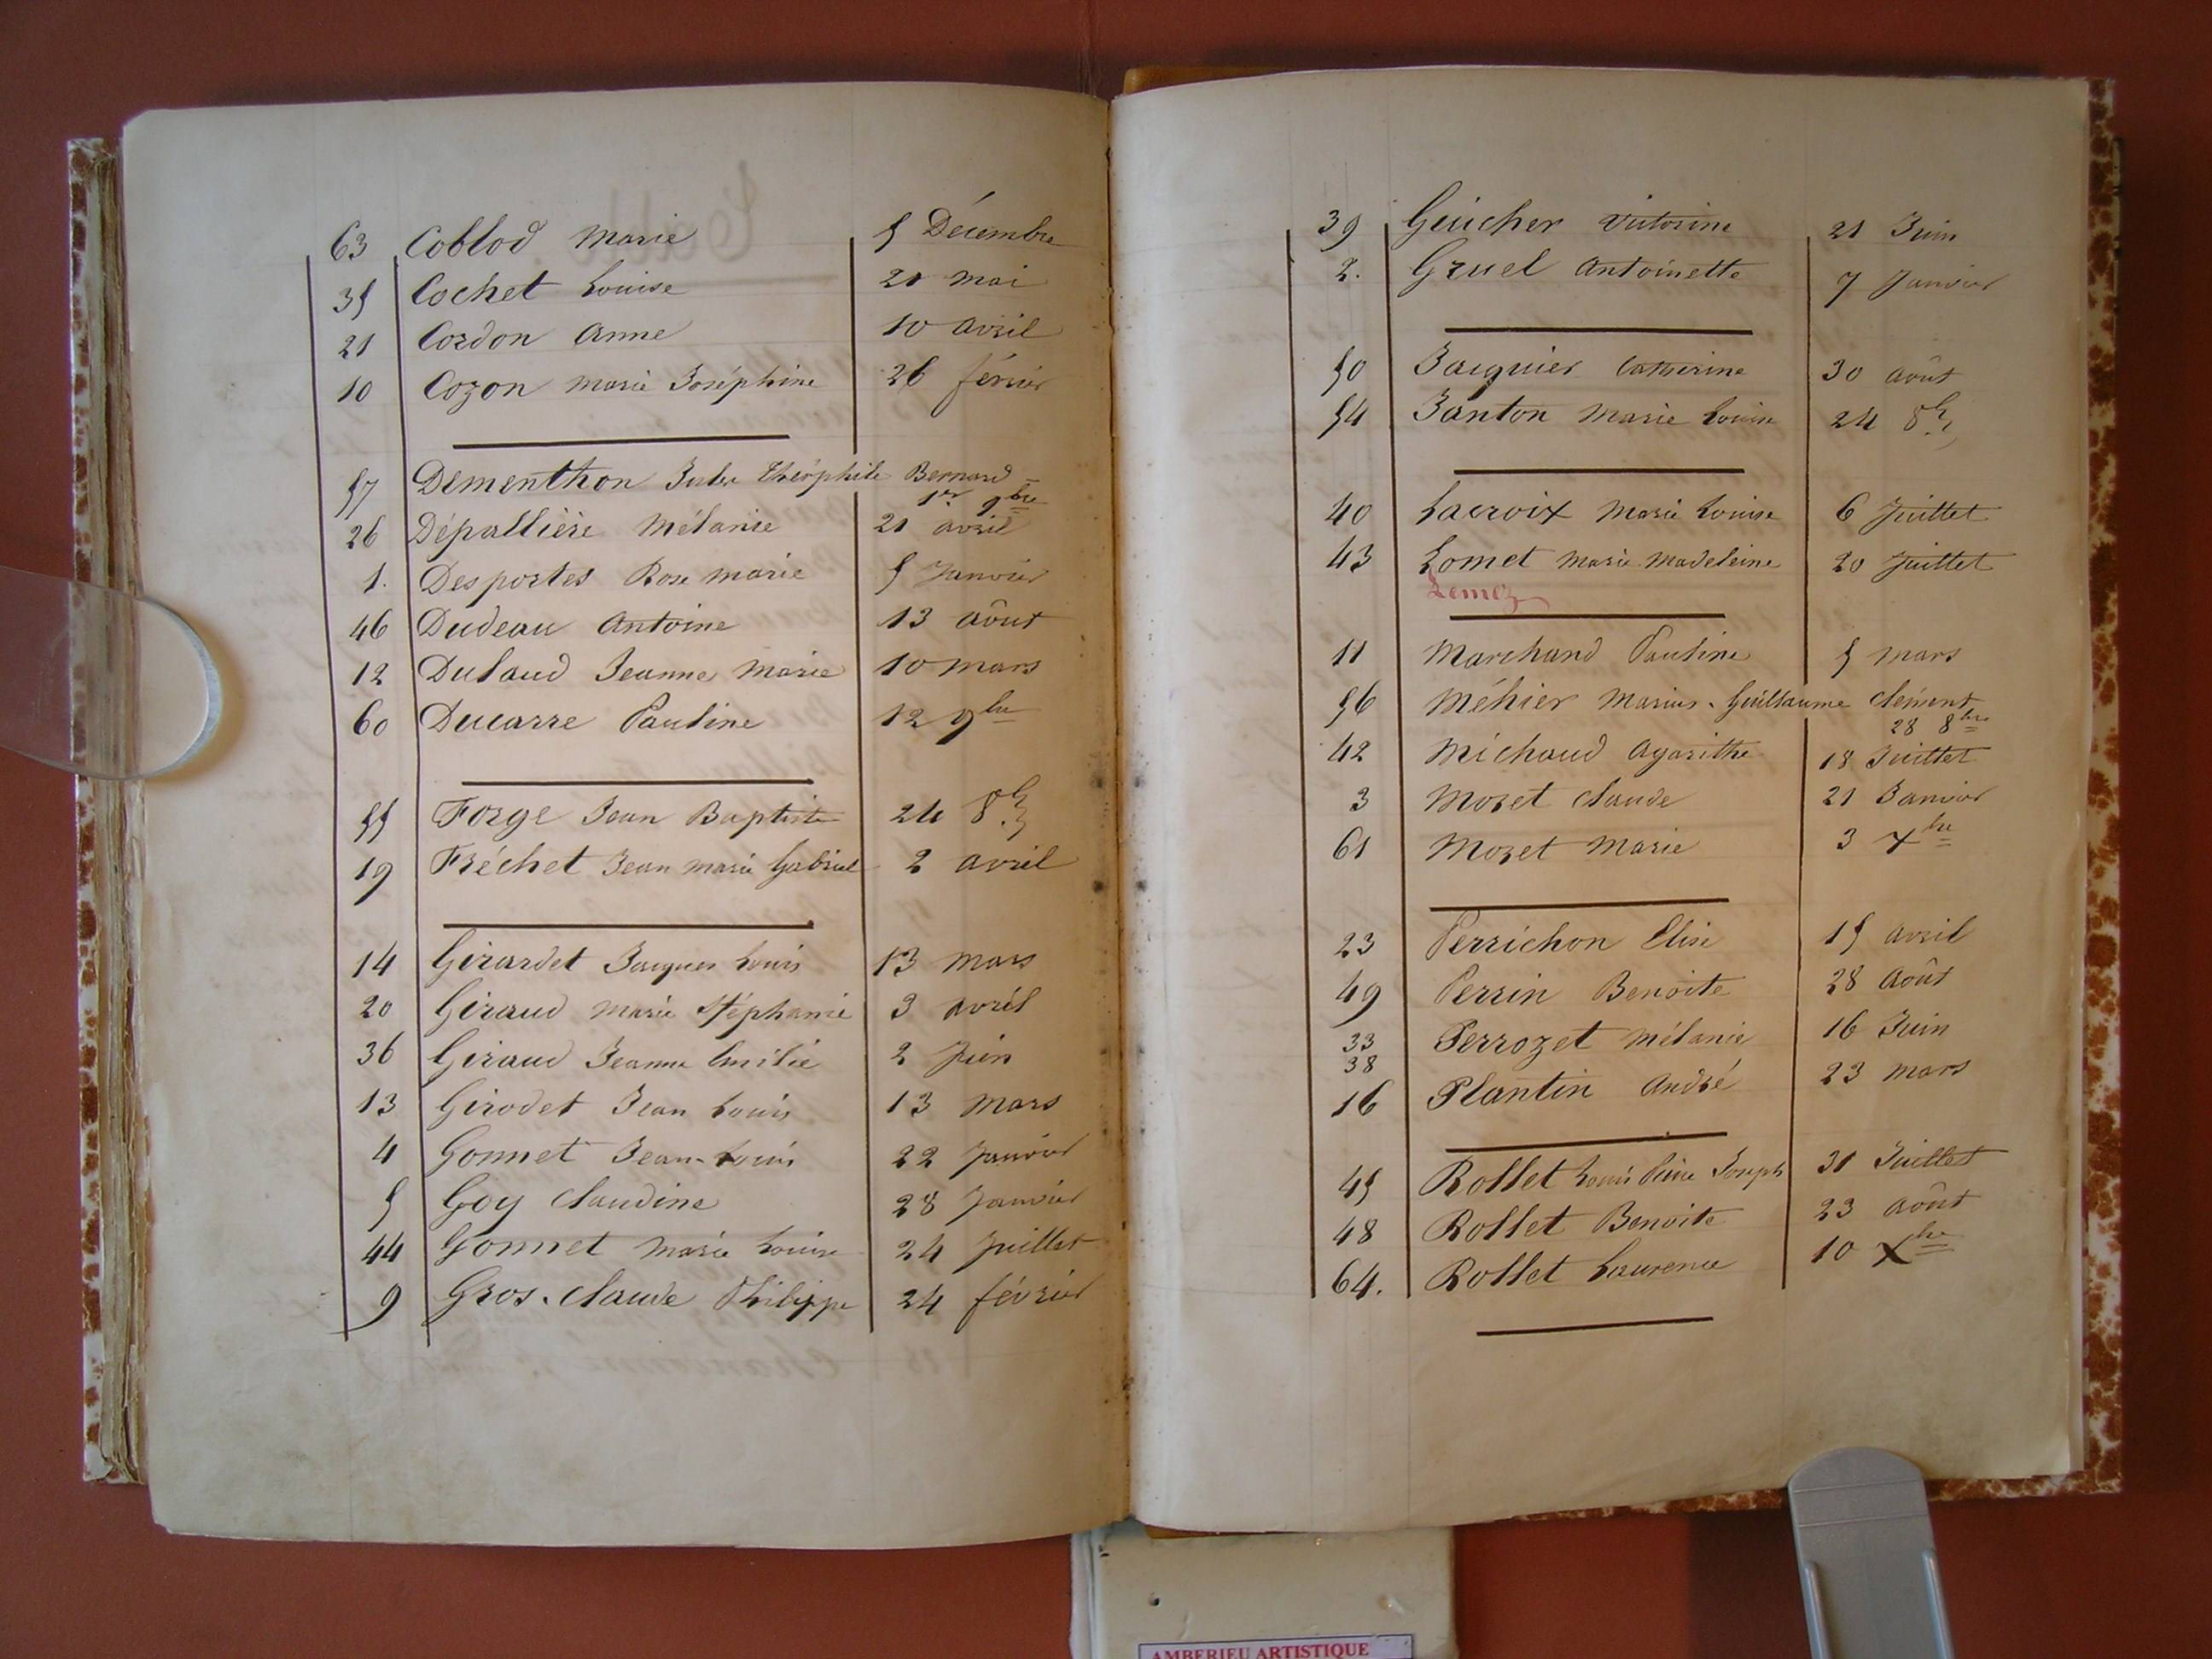 63 Coblod Marie 5 Décembre
35 Cochet Louise 21 Mai
21 Cordon Anne 10 avril
10 Cozon Marie Joséphine 26 février
57 Dementhon Jules Théophile Bernard
1er 9bre
26 Dépallière Mélanie 21 avril
1. Desportes Rose Marie 5 Janvier
46 Dudeau Antoine 13 août
12 Dulaud Jeanne Marie 10 mars
60 Ducarre Pauline 12 9bre
55 Forge Jean Baptiste 24 8b
19 Fréchet Jean Marie Gabriel 2 avril
14 Girardet Jacques Louis 13 Mars
20 Giraud Marie Stéphanie 3 avril
36 Giraud Jeanne Emilie 2 Juin
13 Girodet Jean Louis 13 Mars
4 Gonnet Jean-Louis 22 Janvier
5 Goy Claudine 28 Janvier
44 Gonnet Marie Louise 24 Juillet
9 Gros. Claude Philippe 24 février
39 Guicher Victorine 21 Juin
2. Gruel Antoinette 7 Janvier
50 Jacquier Catherine 30 août
54 Janton Marie Louise 24 8b
40 Lacroix Marie Louise 6 Juillet
43 Lomet Marie Madeleine 20 Juillet
Lemoz
11 Marchand Pauline 5 mars
56 Méhier Marius. Guillaume Clément
28 8bre
42 Michaud Agarithe 18 Juillet
3 Mozet Claude 21 Janvier
61 Mozet Marie 3 Xbre
23 Perrichon Elise 15 avril
49 Perrin Benoite 28 Août
33 Perrozet Mélanie 16 Juin
38
16 Plantin André 23 mars
45 Rollet Louis Pierre Joseph 31 Juillet
48 Rollet Benoite 23 août
64. Rollet Laurence 10 Xbre
AMBERIEU ARTISTIQUE